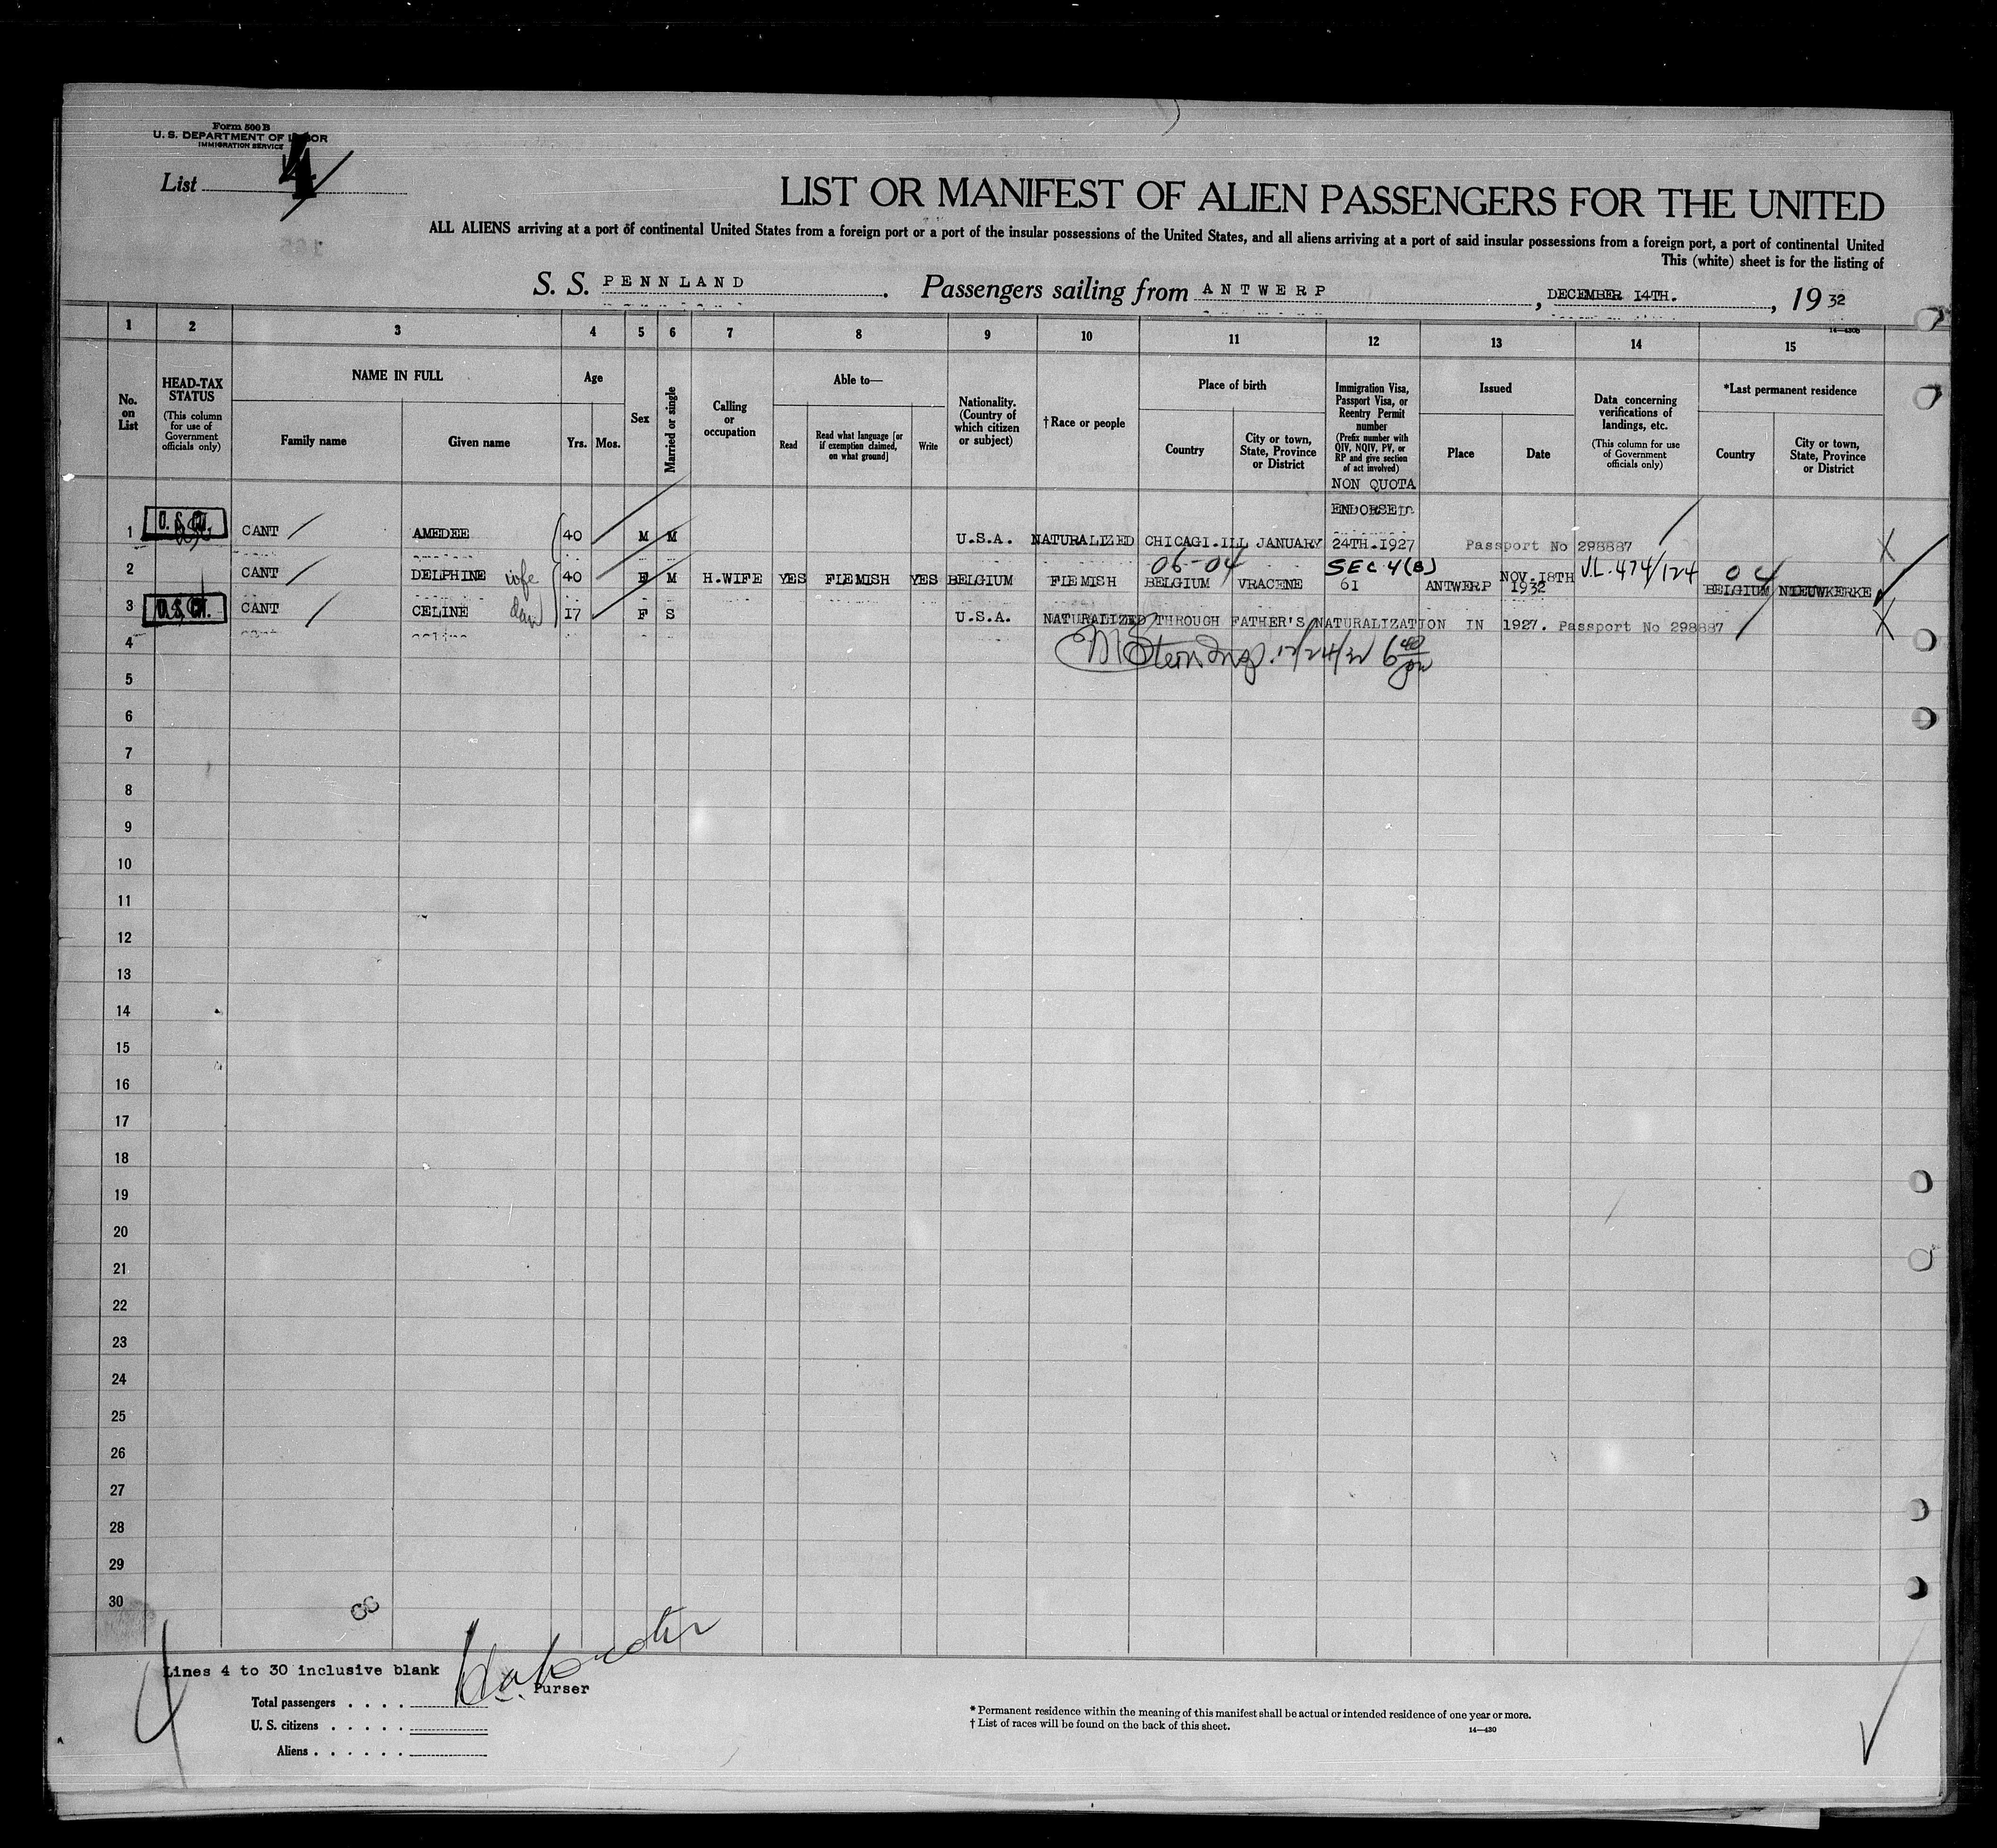 Form 500 B
U. S. DEPARTMENT OF LABOR
IMMIGRATION SERVICE
List 4
LIST OR MANIFEST OF ALIEN PASSENGERS FOR THE UNITED
ALL ALIENS arriving at a port of continental United States from a foreign port or a port of the insular possessions of the United States, and all aliens arriving at a port of said insular possessions from a foreign port, a port of continental United
This (white) sheet is for the listing of
S. S. PENNLAND. Passengers sailing from ANTWERP, DECEMBER 14TH., 1932
14—430b
1 2 3 4 5 6 7 8 9 10 11 12 13 14 15
No. on List
HEAD-TAX STATUS
(This column for use of Government officials only)
NAME IN FULL
Family name
Given name
Age
Yrs. Mos.
Sex
Married or single
Calling or occupation
Able to—
Read
Read what language [or if exemption claimed, on what ground]
Write
Nationality. (Country of which citizen or subject)
† Race or people
Place of birth
Country
City or town, State, Province or District
Immigration Visa, Passport Visa, or Reentry Permit number
(Prefix number with QIV, NQIV, PV, or RP and give section of act involved)
Issued
Place
Date
Data concerning verifications of landings, etc.
(This column for use of Government officials only)
*Last permanent residence
Country
City or town, State, Province or District
NON QUOTA
ENDORSE
1 U. S. CIT. CANT AMEDEE 40 M M U.S.A. NATURALIZED CHICAGI.ILL JANUARY 24TH.1927 Passport No 298887
06-04 SEC 4(B) V.L. 474/124 04
2 CANT DELPHINE wife 40 F M H.WIFE YES FLEMISH YES BELGIUM FLEMISH BELGIUM VRACENE 61 ANTWERP NOV.18TH 1932 BELGIUM NIEUWKERKE
3 U. S. CIT. CANT CELINE dau 17 F S U.S.A. NATURALIZED THROUGH FATHER'S NATURALIZATION IN 1927. Passport No 298887
4 12/24/32 6 40
5
6
7
8
9
10
11
12
13
14
15
16
17
18
19
20
21
22
23
24
25
26
27
28
29
30
Lines 4 to 30 inclusive blank
Purser
Total passengers . . . .
U. S. citizens . . . . .
Aliens . . . . . .
* Permanent residence within the meaning of this manifest shall be actual or intended residence of one year or more.
† List of races will be found on the back of this sheet.
14—430